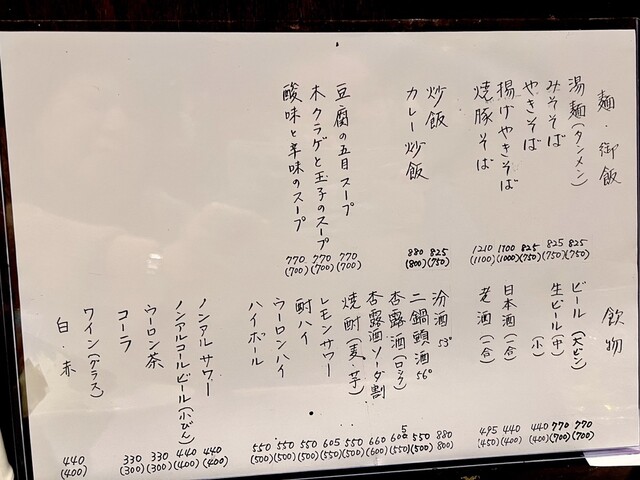 麺・御飯
湯麺(タンメン) 825 (750)
みそそば 825 (750)
やきそば 825 (750)
揚げやきそば 1100 (1000)
焼豚そば 1210 (1100)
炒飯 825 (750)
カレー炒飯 880 (800)
豆腐の五目スープ 770 (700)
木クラゲと玉子のスープ 770 (700)
酸味と辛味のスープ 770 (700)
飲物
ビール(大ビン) 770 (700)
生ビール(中) 770 (700)
(小) 440 (400)
日本酒(一合) 440 (400)
老酒(一合) 495 (450)
汾酒 53° 880 800
二鍋頭酒 56° 550 (500)
杏露酒(ロック) 605 (550)
杏露酒ソーダ割 660 (600)
焼酎(麦・芋) 550 (500)
レモンサワー 605 (550)
酎ハイ 550 (500)
ウーロンハイ 550 (500)
ハイボール 550 (500)
ノンアルサワー 440 (400)
ノンアルコールビール(小びん) 440 (400)
ウーロン茶 330 (300)
コーラ 330 (300)
ワイン(グラス)
白・赤 440 (400)